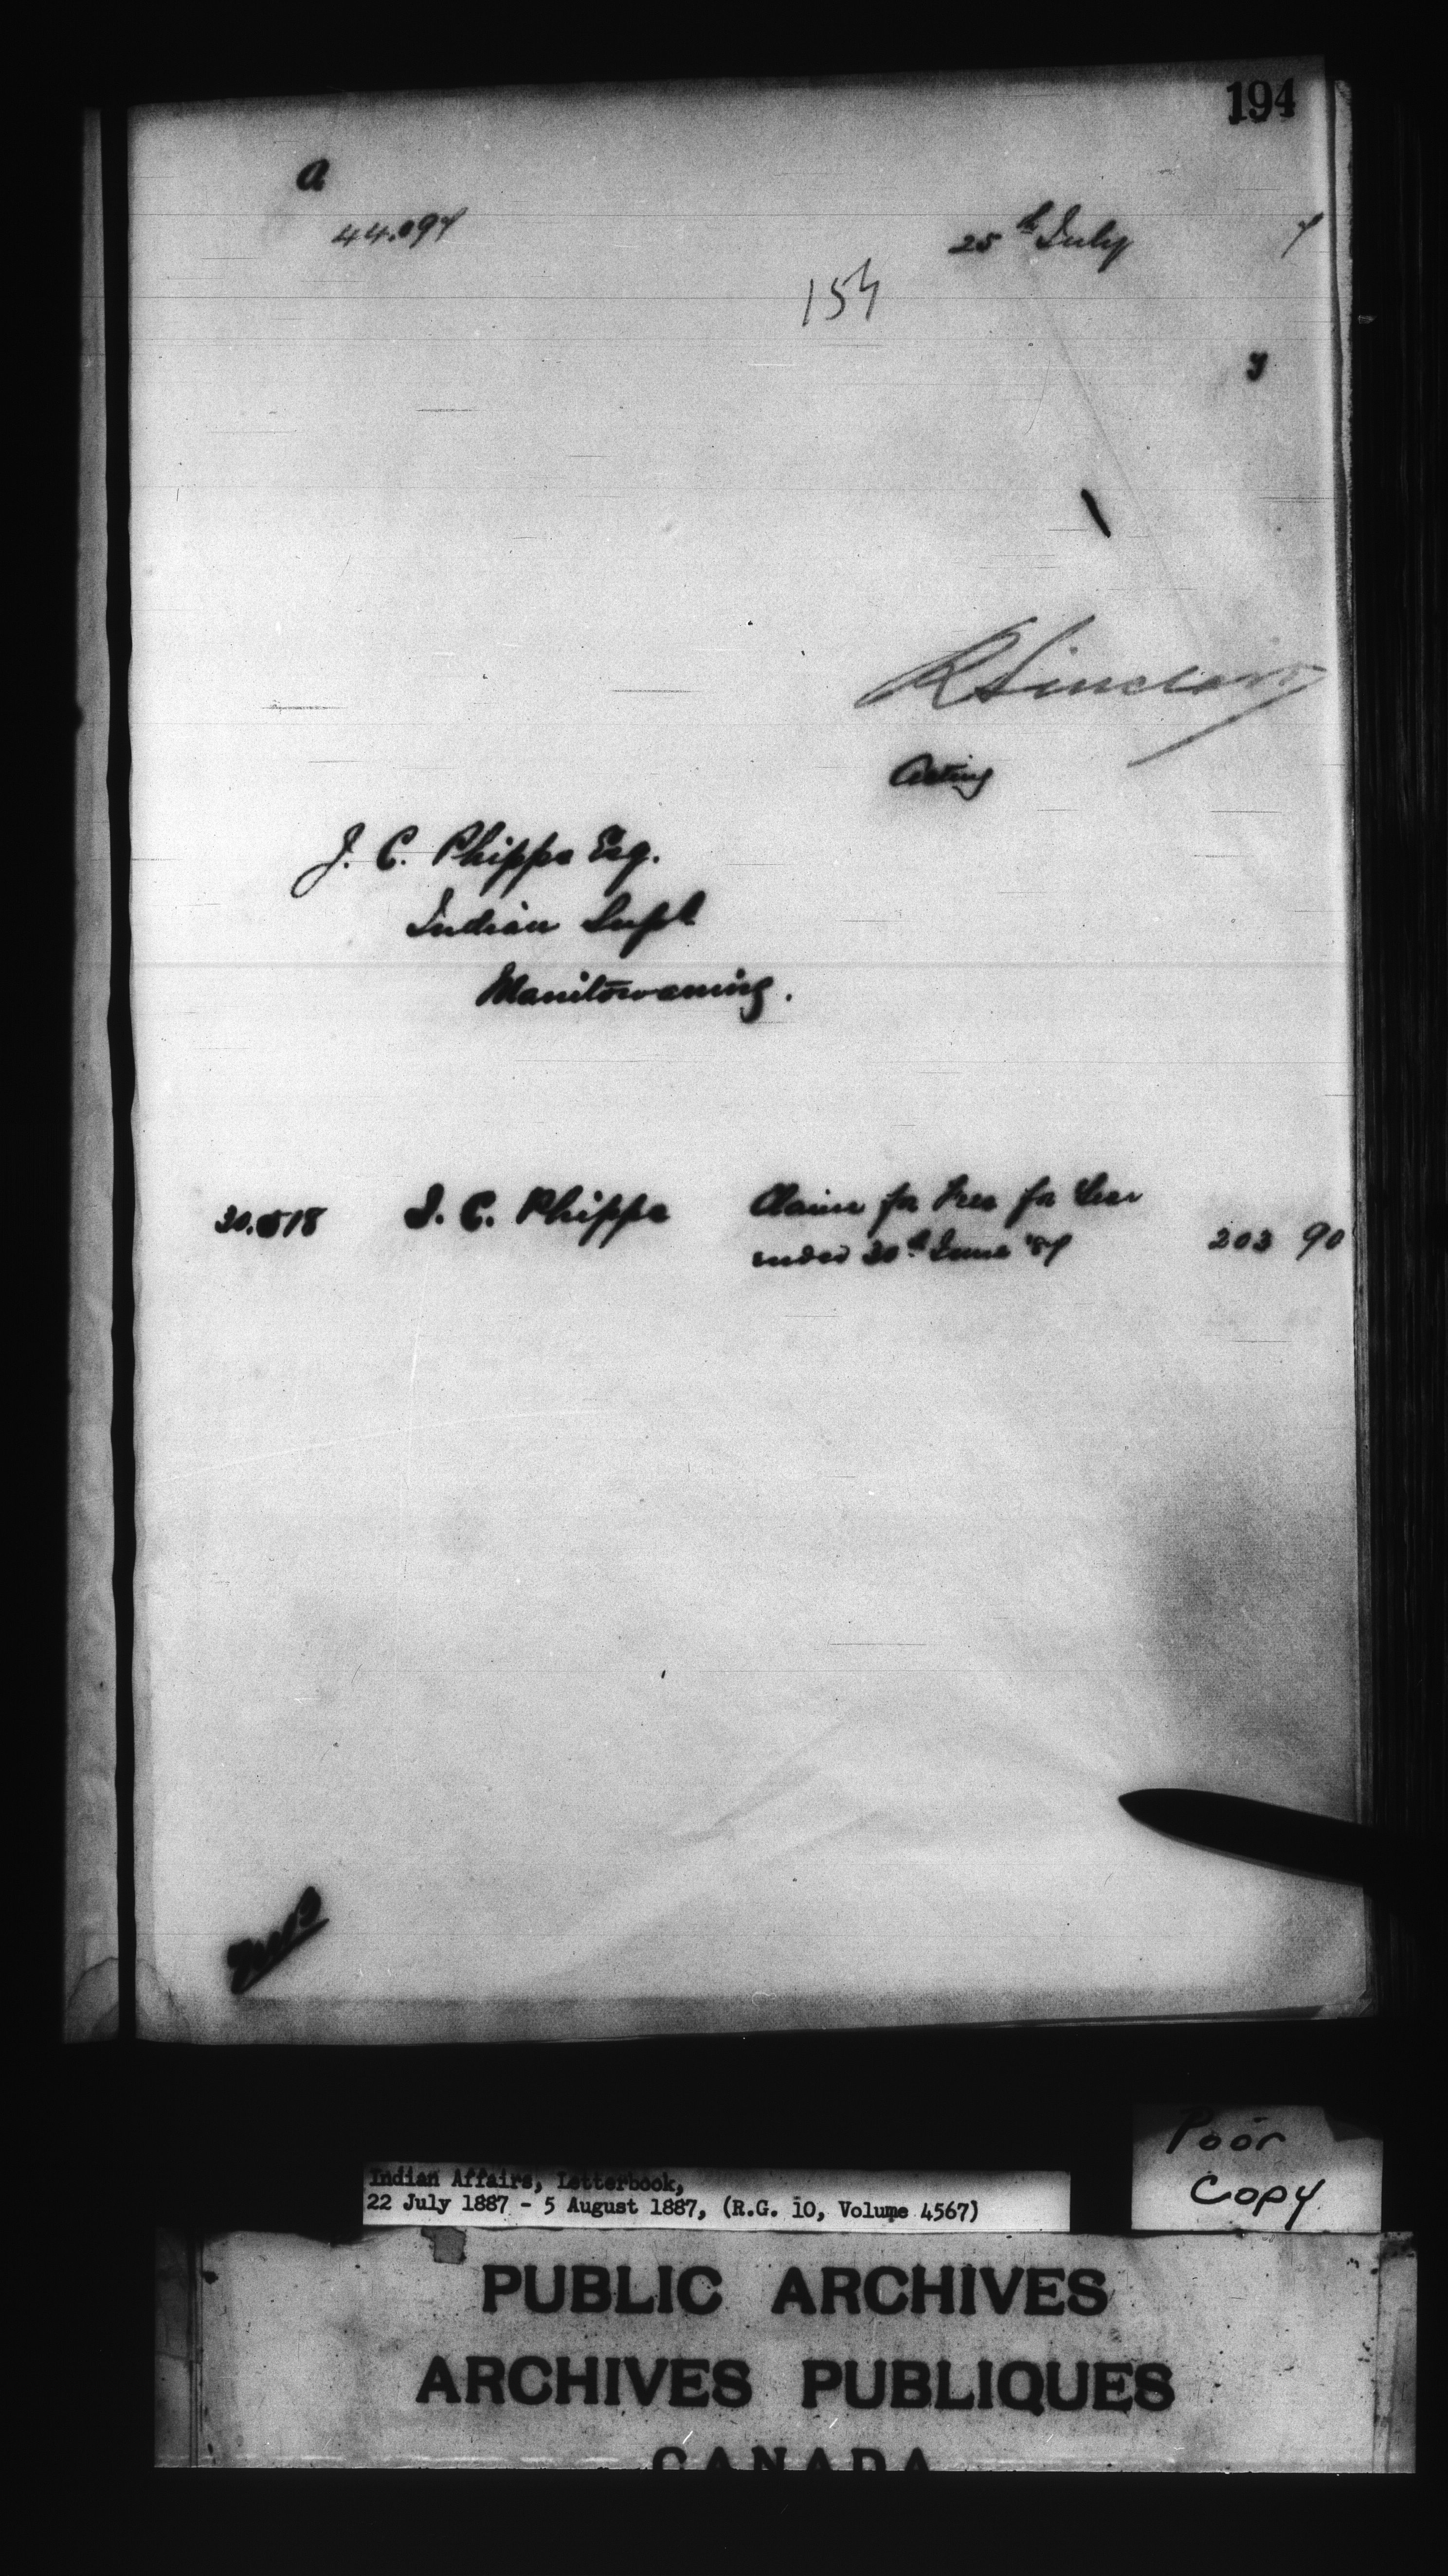 194
a
44.097
25th July 7
154
y
R Sinclair
Acting
J. C. Phipps Esq.
Indian Supt
Manitowaning.
30.518 J. C. Phipps Claim for Fees for Year 
ended 30th June '87 203 90
Poor
Copy
Indian Affairs, Letterbook,
22 July 1887 - 5 August 1887, (R.G. 10, Volume 4567)
PUBLIC ARCHIVES
ARCHIVES PUBLIQUES
CANADA